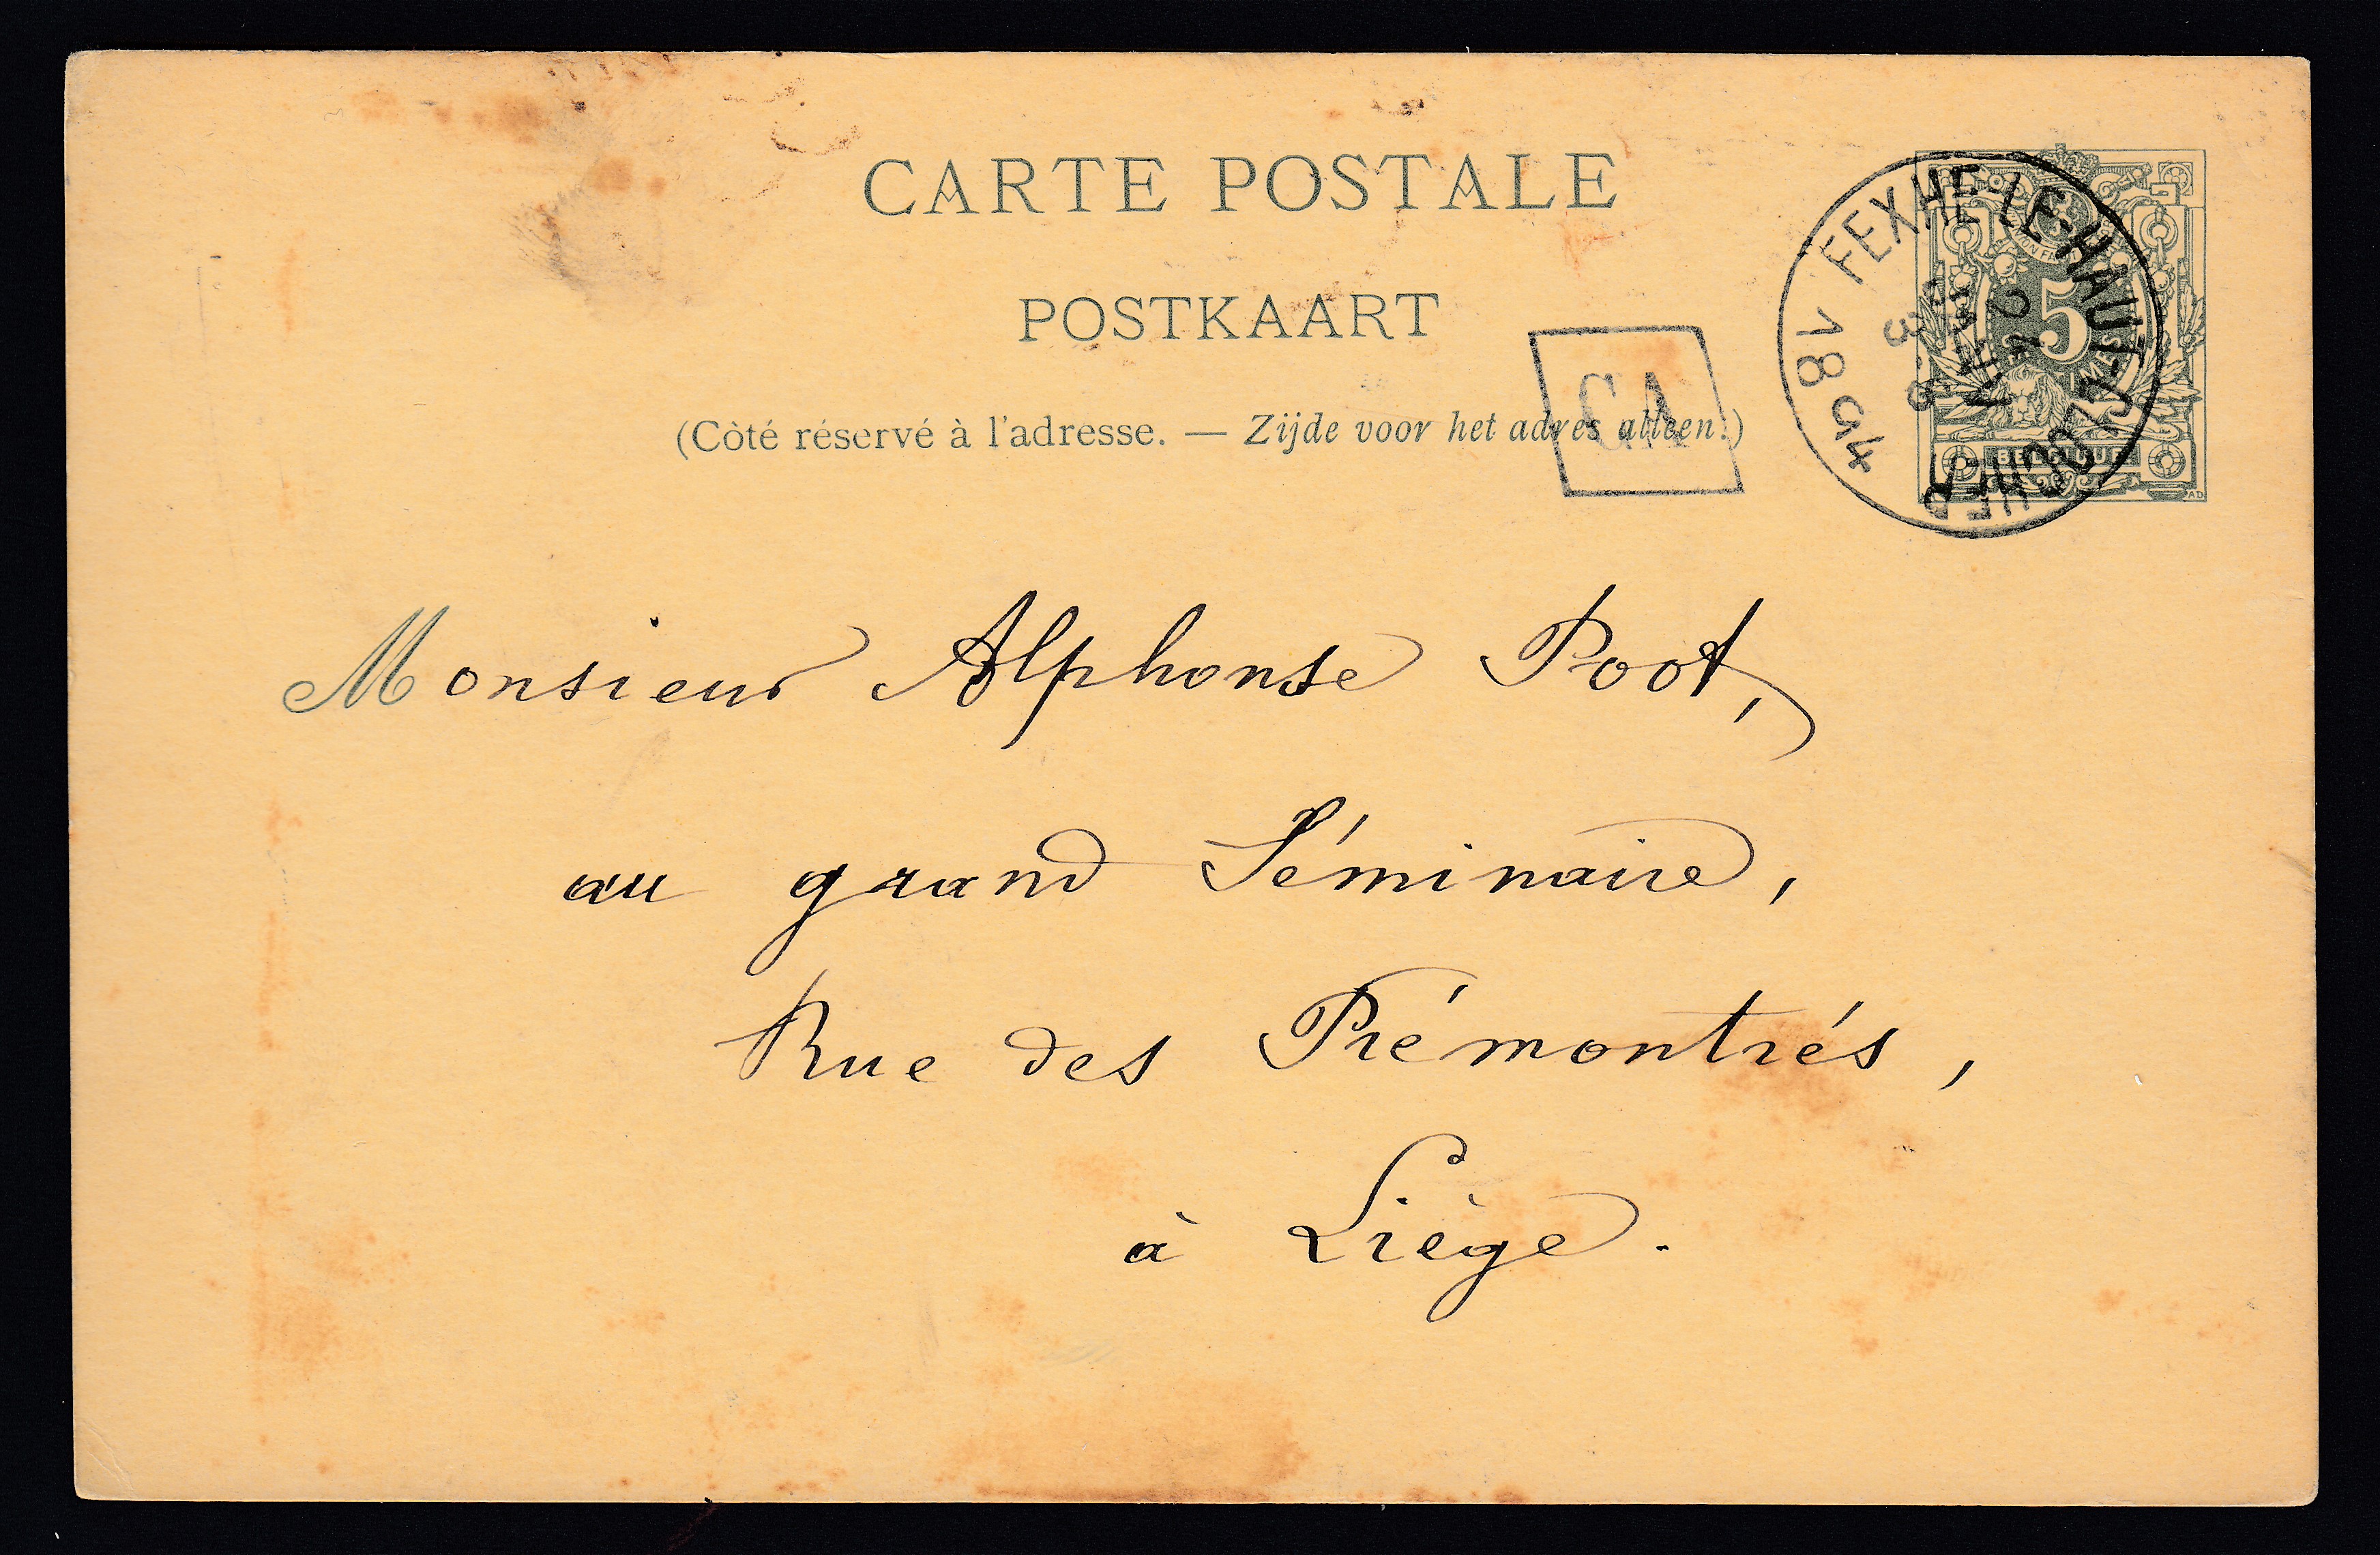 CARTE POSTALE
POSTKAART
(Côté réservé à l'adresse. — Zijde voor het adres alleen.)
CA
FEXHE-LE-HAUT-CLOCHER
1894
5
BELGIQUE
Monsieur Alphonse Poot,
au grand Séminaire,
Rue des Prémontrés,
à Liège.